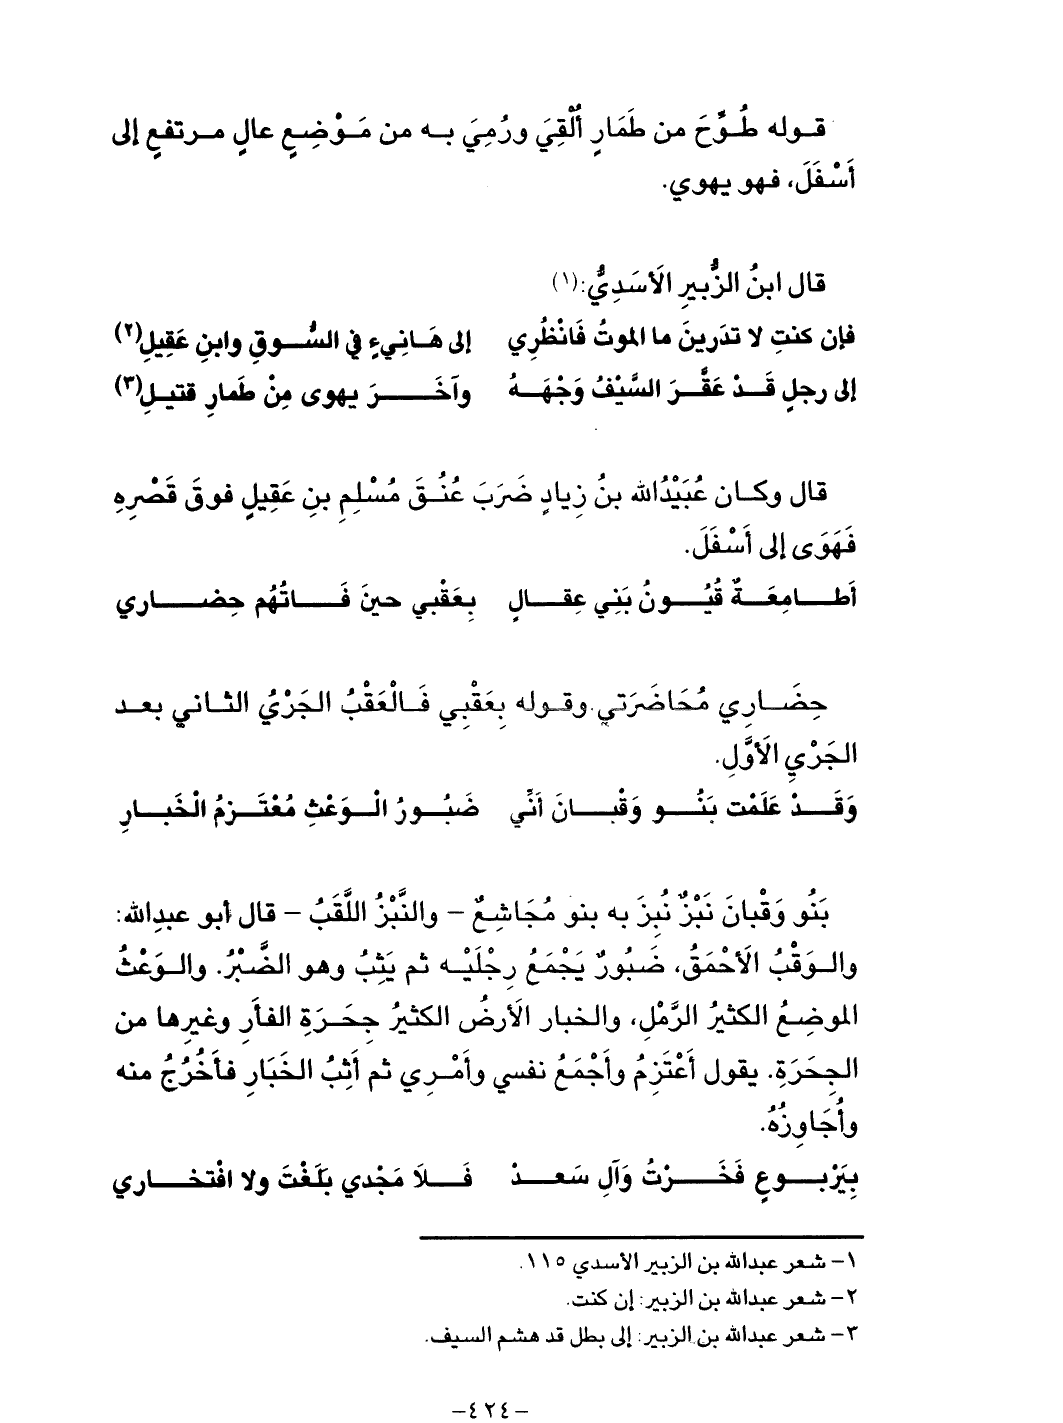 قوله طُوِّحَ من طَمَارِ أُلْقِيَ ورُمِيَ به من مَوْضِعٍ عالٍ مرتفعٍ إلى
أَسْفَلَ، فهو يهوي.
قال ابنُ الزُّبيرِ الأَسَدِيُّ:(١)
فإن كنتِ لا تدَرينَ ما الموتُ فَانْظُرِي إلى هَانِيءٍ في السُّوقِ وابنِ عَقِيلِ(٢)
إلى رجلٍ قَدْ عَقَّرَ السَّيْفُ وَجْهَهُ وآخَرَ يهوى مِنْ طَمارِ قتيلِ(٣)
قال وكان عُبَيْدُالله بنُ زِيادٍ ضَرَبَ عُنُقَ مُسْلِمِ بنِ عَقِيلٍ فوقَ قَصْرِهِ
فَهَوَى إلى أَسْفَلَ.
أَطامِعَةٌ قُيُونُ بَنِي عِقالٍ بِعَقْبي حينَ فَاتُهُم حِضاري
حِضَارِي مُحَاضَرَتي وقوله بِعَقْبِي فَالْعَقْبُ الجَرْيُ الثاني بعد
الجَرْيِ الأَوَّلِ.
وَقَدْ عَلَمْت بَنُو وَقْبانَ أَنِّي ضَبُورُ الْوَعْثِ مُعْتَزمُ الْخَبارِ
بَنُو وَقْبانَ نَبْزٌ نُبِزَ به بنو مُجَاشِعٌ – والنَّبْزُ اللَّقَبُ – قال أبو عبدِالله:
والوَقْبُ الأَحْمَقُ، ضَبُورٌ يَجْمَعُ رِجْلَيْه ثم يَثِبُ وهو الضَّبْرُ. والوَعْثُ
الموضِعُ الكثيرُ الرَّمْلِ، والخبار الأرضُ الكثيرُ جِحَرَةِ الفأرِ وغيرِها من
الجِحَرَةِ. يقول أَعْتَزِمُ وأَجْمَعُ نفسي وأَمْرِي ثم أَثِبُ الخَبَارِ فأَخْرُجُ منه
وأُجَاوِزُهُ.
بِيَرْبوعٍ فَخَرْتُ وَآلِ سَعدْ فَلاَ مَجْدي بَلَغْتَ ولا افْتخاري
١– شعر عبدالله بن الزبير الأسدي ١١٥.
٢– شعر عبدالله بن الزبير: إن كنت.
٣– شعر عبدالله بن الزبير: إلى بطل قد هشم السيف.
–٤٢٤–